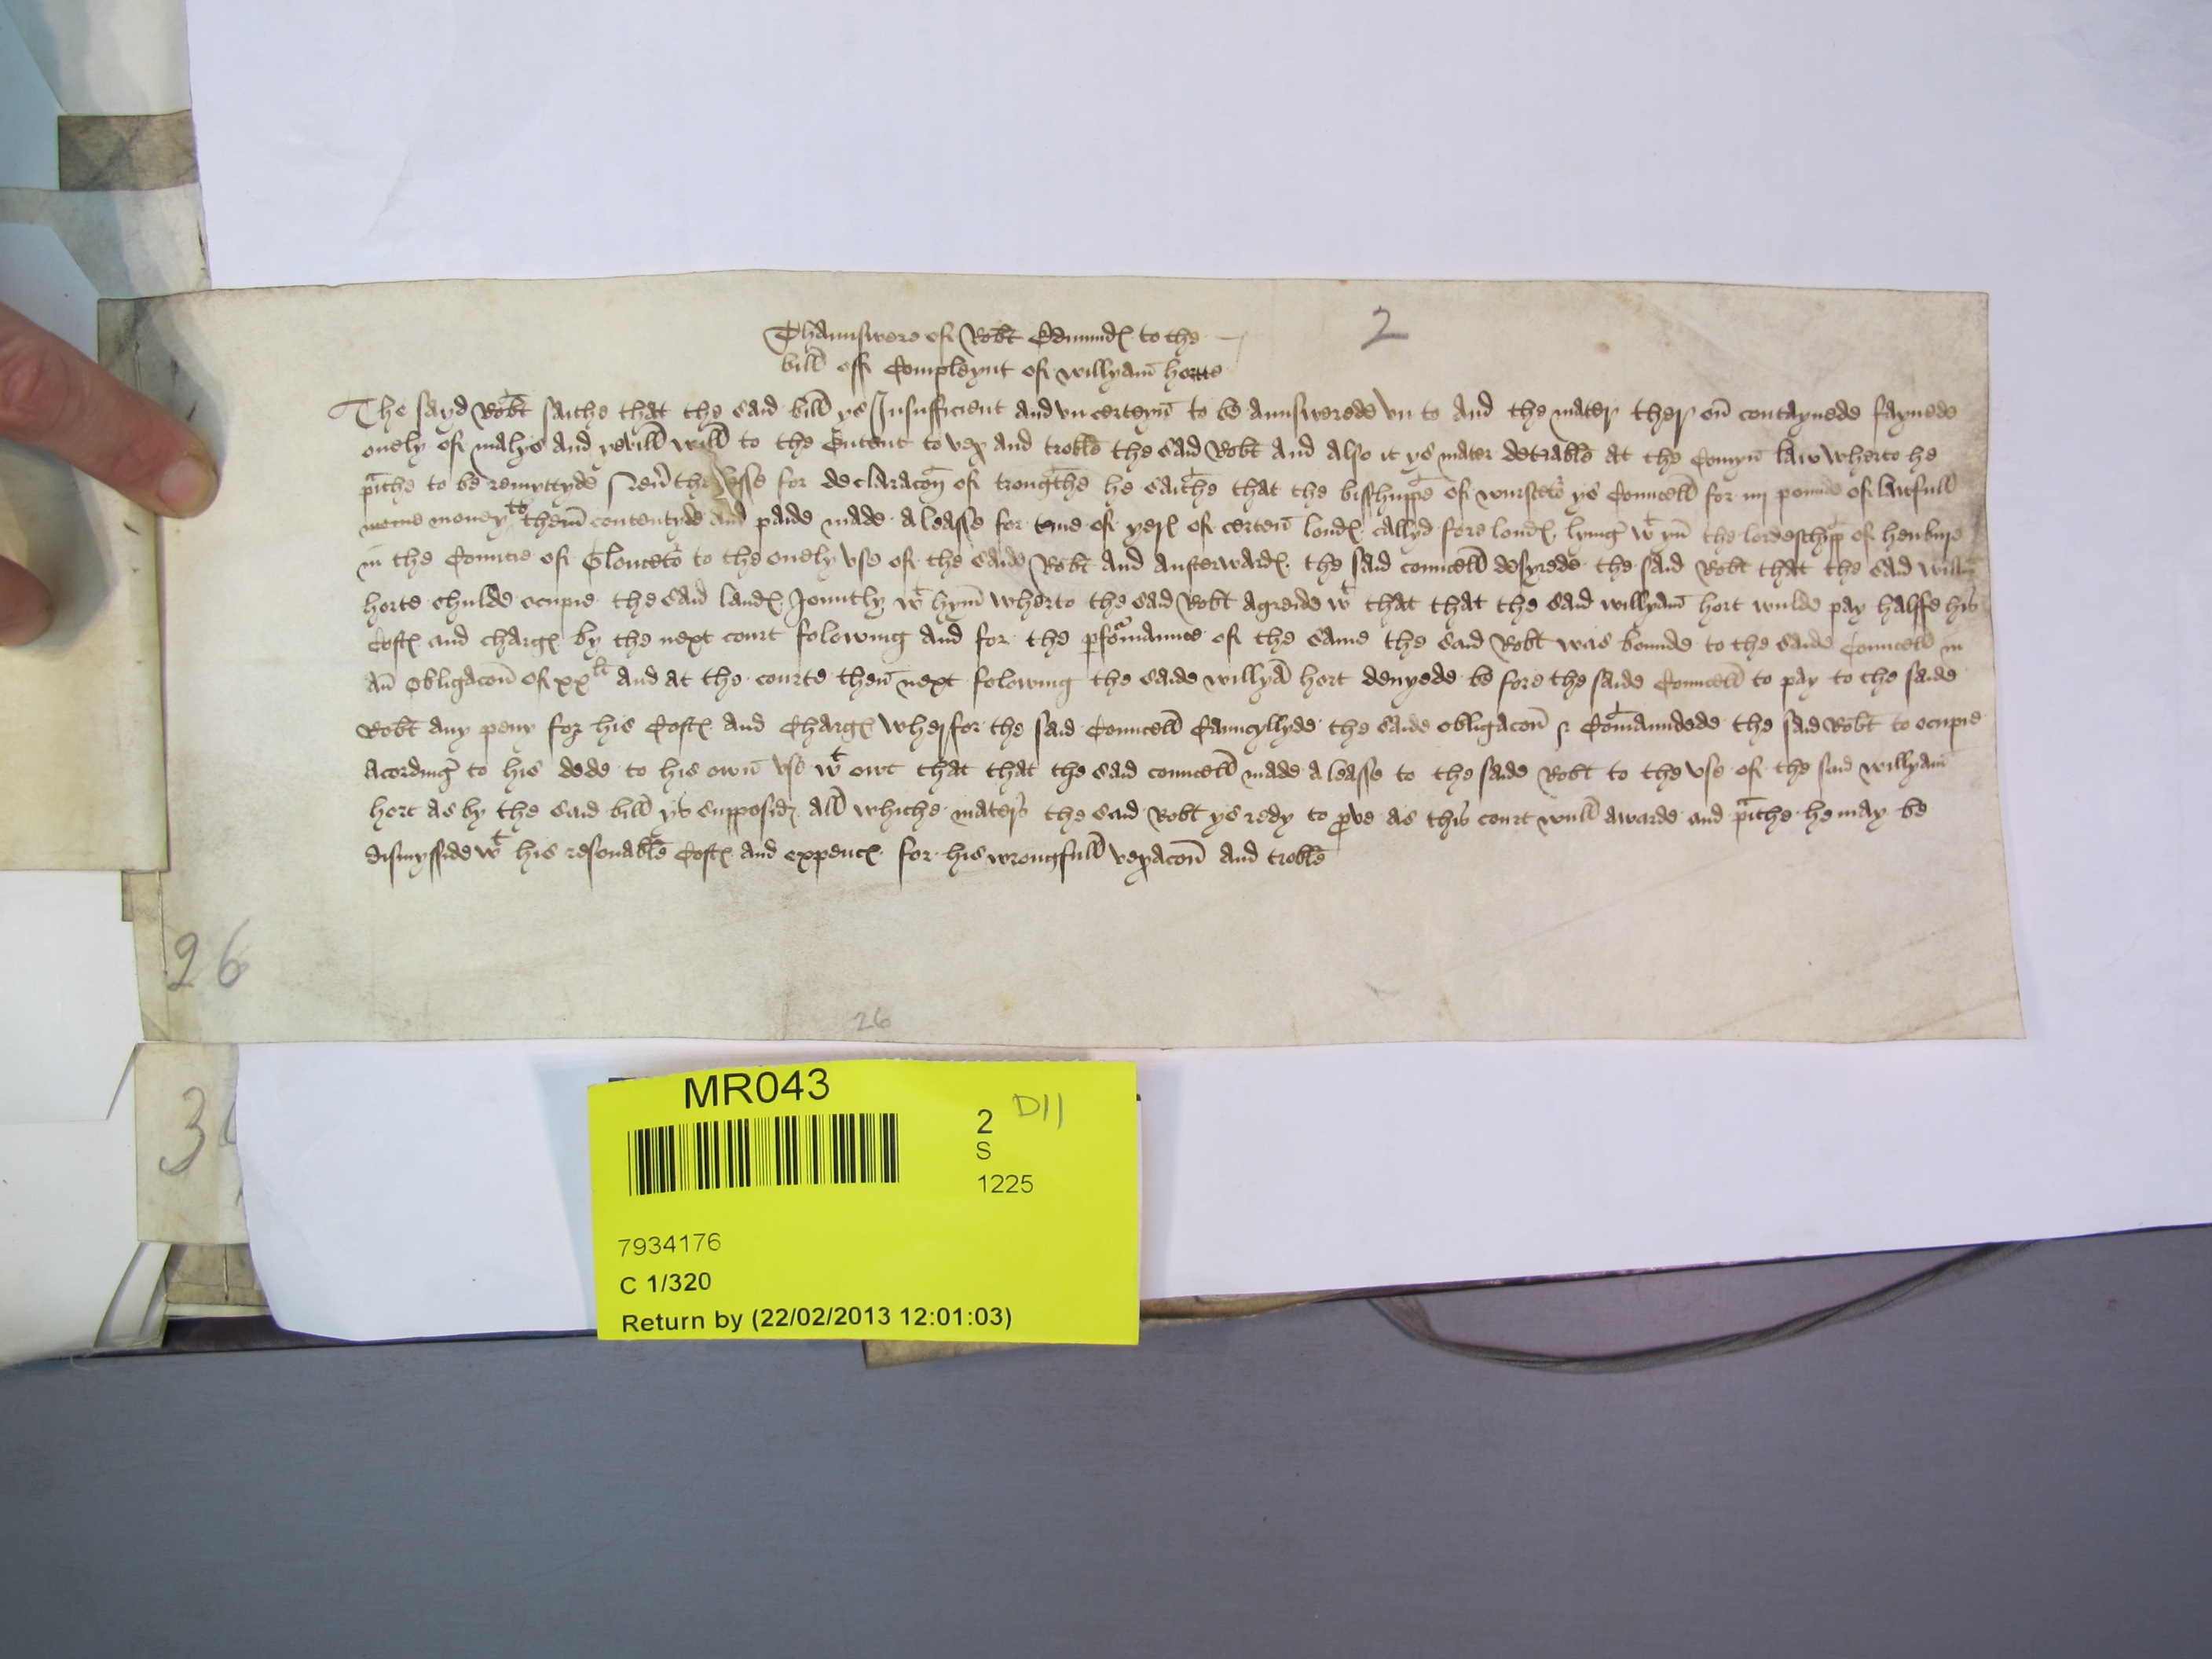 2
Thaunswere of Robt Edmundes to the
bill off Compleynt of willyam hortte
The sayd Robt saithe that the said bill ys Insufficient and vn certeyn to be aunswerede vn to And the mater ther on contaynede faynede
onely of malys and yevill will to the Entent to vex and troble the said Robt And also it ys mater detrable at the Comyn law wherto he
praithe to be remyttyde for declaracon of trougthe he saithe that the bisshuppe of wursceter ys Councell for iiij pounde of lawfull
money to them contentyde and paide made a leasse for terme of yeres of certen londes callyd fore londes lying wt yn the lordeschipp of henbury
in the Countie of Glouceter to the onely vse of the saide Robt And aufterwardes the said councell desyrede the said Robt that the said willm
horte shulde ocupie the said landes Jountly wt hym wherto the said Robt agreide wt that that the said willyam hort wulde pay halffe his
Costes and charges by the next court folowing and for the pformaunce of the same the said Robt was bounde to the saide Councell in
an obligacon of xx li And at the courte then next folowing the saide willyam hort denyede be fore the saide Councell to pay to the saide
Robt any peny for his Costes and Charges wherfor the said Councell Cauncyllyde the saide obligacon & Comaundede the said Robt to ocupie
acording to his dede to his own vse wt owt that that the said councell made a leasse to the saide Robt to the vse of the said willyam
hort as by the said bill ys supposid all whiche maters the said Robt ys redy to prove as this court wull awarde and praithe he may be
dismysside wt his resonable Costes and expences for his wrongfull vexacon and troble
26
26
3
MR043
2 D11
S
1225
7934176
C 1/320
Return by (22/02/2013 12:01:03)